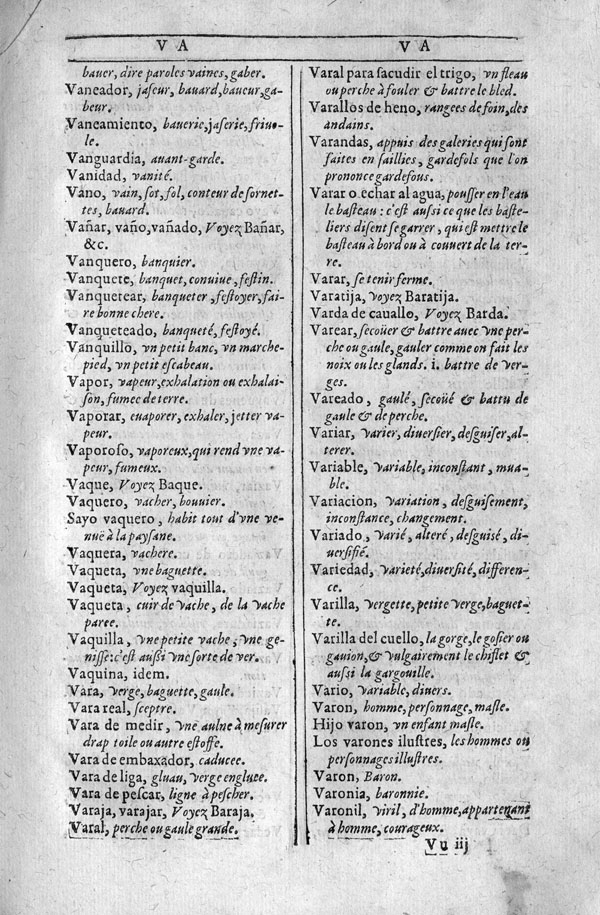 V A
bauer, dire paroles vaines, gaber.
Vaneador, jaseur, bauard, baueur, ga-
beur.
Vaneamiento, bauerie, jaserie, friuo-
le.
Vanguardia, auant-garde.
Vanidad, vanité.
Vano, vain, sot, fol, conteur de sornet-
tes, bauard.
Vañar, vaño, vañado, Voyez Bañar,
&c.
Vanquero, banquier.
Vanquete, banquet, conuiue, festin.
Vanquetear, banqueter, festoyer, fai-
re bonne chere.
Vanqueteado, banqueté, festoyé.
Vanquillo, vn petit banc, vn marche-
pied, vn petit escabeau.
Vapor, vapeur, exhalation ou exhalai-
son, fumee de terre.
Vaporar, euaporer, exhaler, jetter va-
peur.
Vaporoso, vaporeux, qui rend vne va-
peur, fumeux.
Vaque, Voyez Baque.
Vaquero, vacher, bouuier.
Sayo vaquero, habit tout d'vne ve-
nuë à la paysane.
Vaquera, vachere.
Vaqueta, vne baguette.
Vaqueta, Voyez vaquilla.
Vaqueta, cuir de vache, de la vache
paree.
Vaquilla, vne petite vache, vne ge-
nisse: c'est aussi vne sorte de ver.
Vaquina, idem.
Vara, verge, baguette, gaule.
Vara real, sceptre.
Vara de medir, vne aulne à mesurer
drap toile ou autre estoffe.
Vara de embaxador, caducee.
Vara de liga, gluau, verge engluee.
Vara de pescar, ligne à pescher.
Varaja, varajar, Voyez Baraja.
Varal, perche ou gaule grande.
V A
Varal para sacudir el trigo, vn fleau
ou perche à fouler & battre le bled.
Varallos de heno, rangees de foin, des
andains.
Varandas, appuis des galeries qui sont
faites en saillies, gardefols que l'on
prononce gardefous.
Varar o echar al agua, pousser en l'eau
le basteau: c'est aussi ce que les baste-
liers disent se garrer, qui est mettre le
basteau à bord ou à couuert de la ter-
re.
Varar, se tenir ferme.
Varatija, voyez Baratija.
Varda de cauallo, Voyez Barda.
Varear, secoüer & battre auec vne per-
che ou gaule, gauler comme on fait les
noix ou les glands. i. battre de ver-
ges.
Vareado, gaulé, secoüé & battu de
gaule & de perche.
Variar, varier, diuersier, desguiser, al-
terer.
Variable, variable, inconstant, mua-
ble.
Variacion, variation, desguisement,
inconstance, changement.
Variado, varié, alteré, desguisé, di-
uersifié.
Variedad, varieté, diuersité, differen-
ce.
Varilla, vergette, petite verge, baguet-
te.
Varilla del cuello, la gorge, le gosier ou
gauion, & vulgairement le chiflet &
aussi la gargouille.
Vario, variable, diuers.
Varon, homme, personnage, masle.
Hijo varon, vn enfant masle.
Los varones ilustres, les hommes ou
personnages illustres.
Varon, Baron.
Varonia, baronnie.
Varonil, viril, d'homme, appartenant
à homme, courageux.
Vu iij